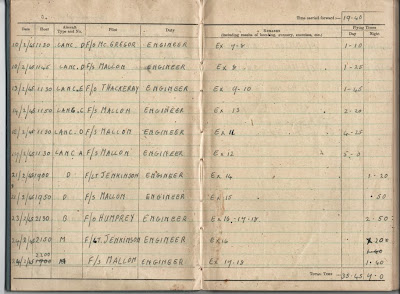 Time carried forward :— 19.40
Date Hour Aircraft Type and No. Pilot Duty REMARKS (including results of bombing, gunnery, exercises, etc.) Flying Times Day Night
10/2/45 1130 LANC. D F/O McGREGOR ENGINEER Ex 7-8 1-10
10/2/45 1145 LANC. D F/S MALLON ENGINEER Ex 8 1-25
13/2/45 1130 LANC. E F/O THACKERAY ENGINEER Ex 9-10 1-45
14/2/45 1150 LANC. C F/S MALLON ENGINEER Ex 13 2-20
1130 LANC. O F/S MALLON ENGINEER Ex 11 4-25
1130 LANC. A F/S MALLON ENGINEER Ex 12 5-0
21/2/45 1900 D F/LT JENKINSON ENGINEER Ex 14 1-20
1950 D F/S MALLON ENGINEER Ex 15 .50
23/2/45 2130 O F/O HUMPREY ENGINEER Ex 16,-17-18 2-50
24/2/45 2150 M F/LT. JENKINSON ENGINEER Ex 16 2.00
2200 1.40
24/2/45 1900 M F/S MALLON ENGINEER Ex 17-18 1.40
TOTAL TIME 35.45 9.0